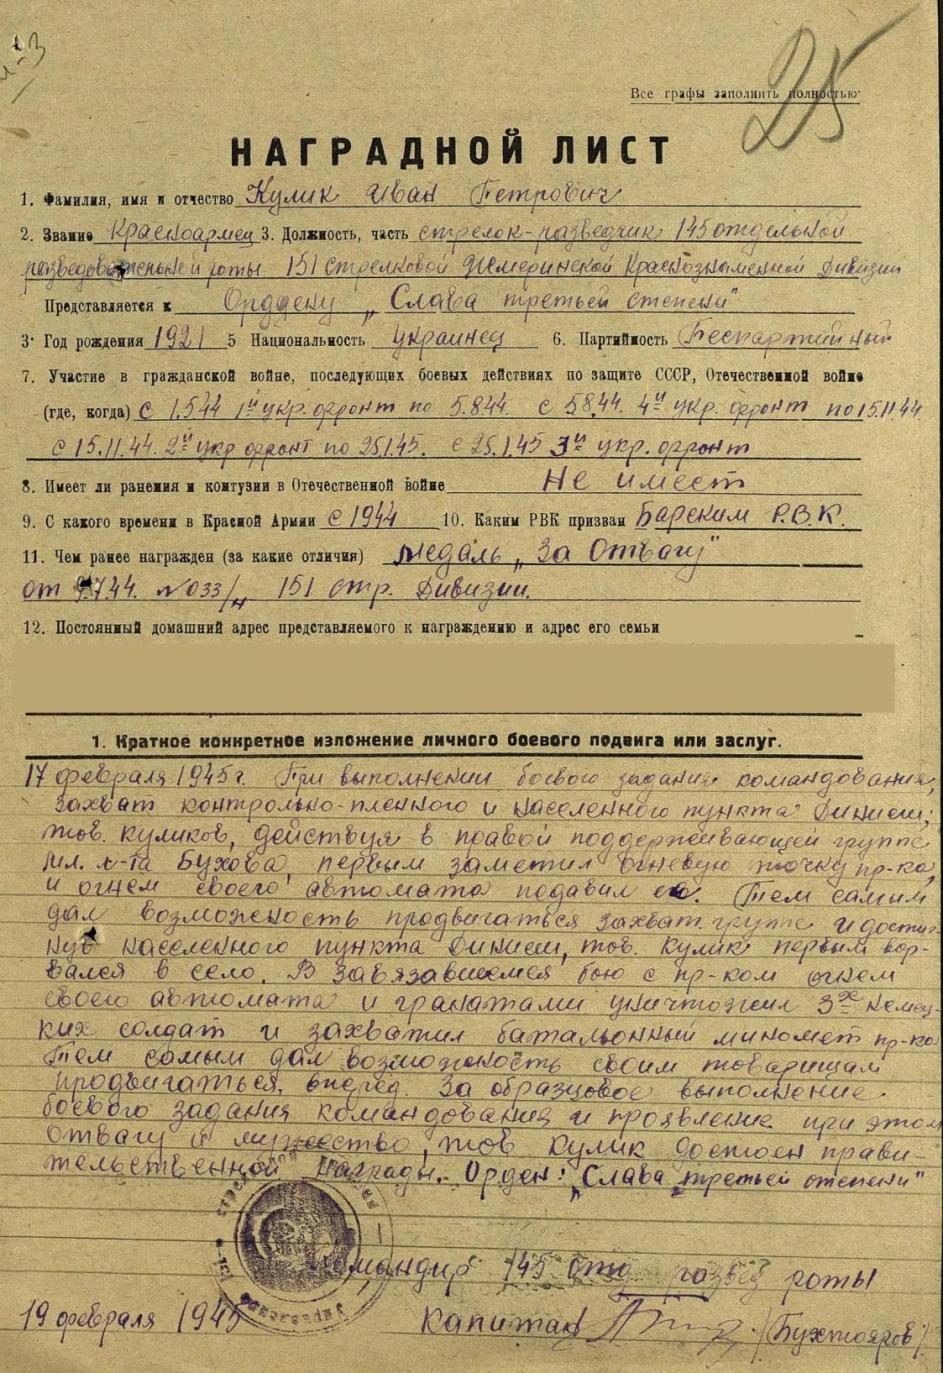 25
Все графы заполнить полностью.
НАГРАДНОЙ ЛИСТ
1. Фамилия, имя и отчество Кулик Иван Петрович
2. Звание Красноармец 3. Должность, часть стрелок-разведчик 145 отдельной
разведовательной роты 151 Стрелковой Жмеринской Краснознаменной Дивизии
Представляется к Орддену „Слава третьей степени"
3· Год рождения 1921 5 Национальность украинец 6. Партийность Беспартийный
7. Участие в гражданской войне, последующих боевых действиях по защите СССР, Отечественной войне
(где, когда) с 1.5.44 1й укр. фронт по 5.8.44. с 5.8.44. 4й укр. фронт по 15.11.44
с 15.11.44. 2й укр фронт по 25.1.45. с 25.1.45 3й укр. фронт
8. Имеет ли ранения и контузии в Отечественной войне Не имеет
9. С какого времени в Красной Армии с 1944 10. Каким РВК призван Барским Р.В.К.
11. Чем ранее награжден (за какие отличия) медаль „За Отвагу"
от 9.7.44. №033/н 151 стр. Дивизии.
12. Постоянный домашний адрес представляемого к награждению и адрес его семьи
1. Краткое конкретное изложение личного боевого подвига или заслуг.
17 февраля 1945г. При выполнении боевого задания командования,
захват контрольно-пленного и населенного пункта Диниеш;
тов. куликов, действуя в правой поддерживающей группе
мл. л-та Бухова, первым заметил огневую точку пр-ка,
и огнем своего автомата подавил ее. Тем самым
дал возможность продвигаться захват. группе и достиг-
нув населенного пункта Диниеш, тов. Кулик первым вор-
вался в село. В завязавшемся бою с пр-ком огнем
своего автомата и гранатами уничтожил 3х немец-
ких солдат и захватил батальонный миномет пр-ка
Тем самым дал возможность своим товарищам
продвигаться вперед. За образцовое выполнение
боевого задания командования и проявление при этом
отвагу и мужество, тов Кулик достоен прави-
тельственной Награды. Орден: „Слава третьей степени"
Командир 145 отд развед роты
19 февраля 1945 Капитан /Бухтояров/